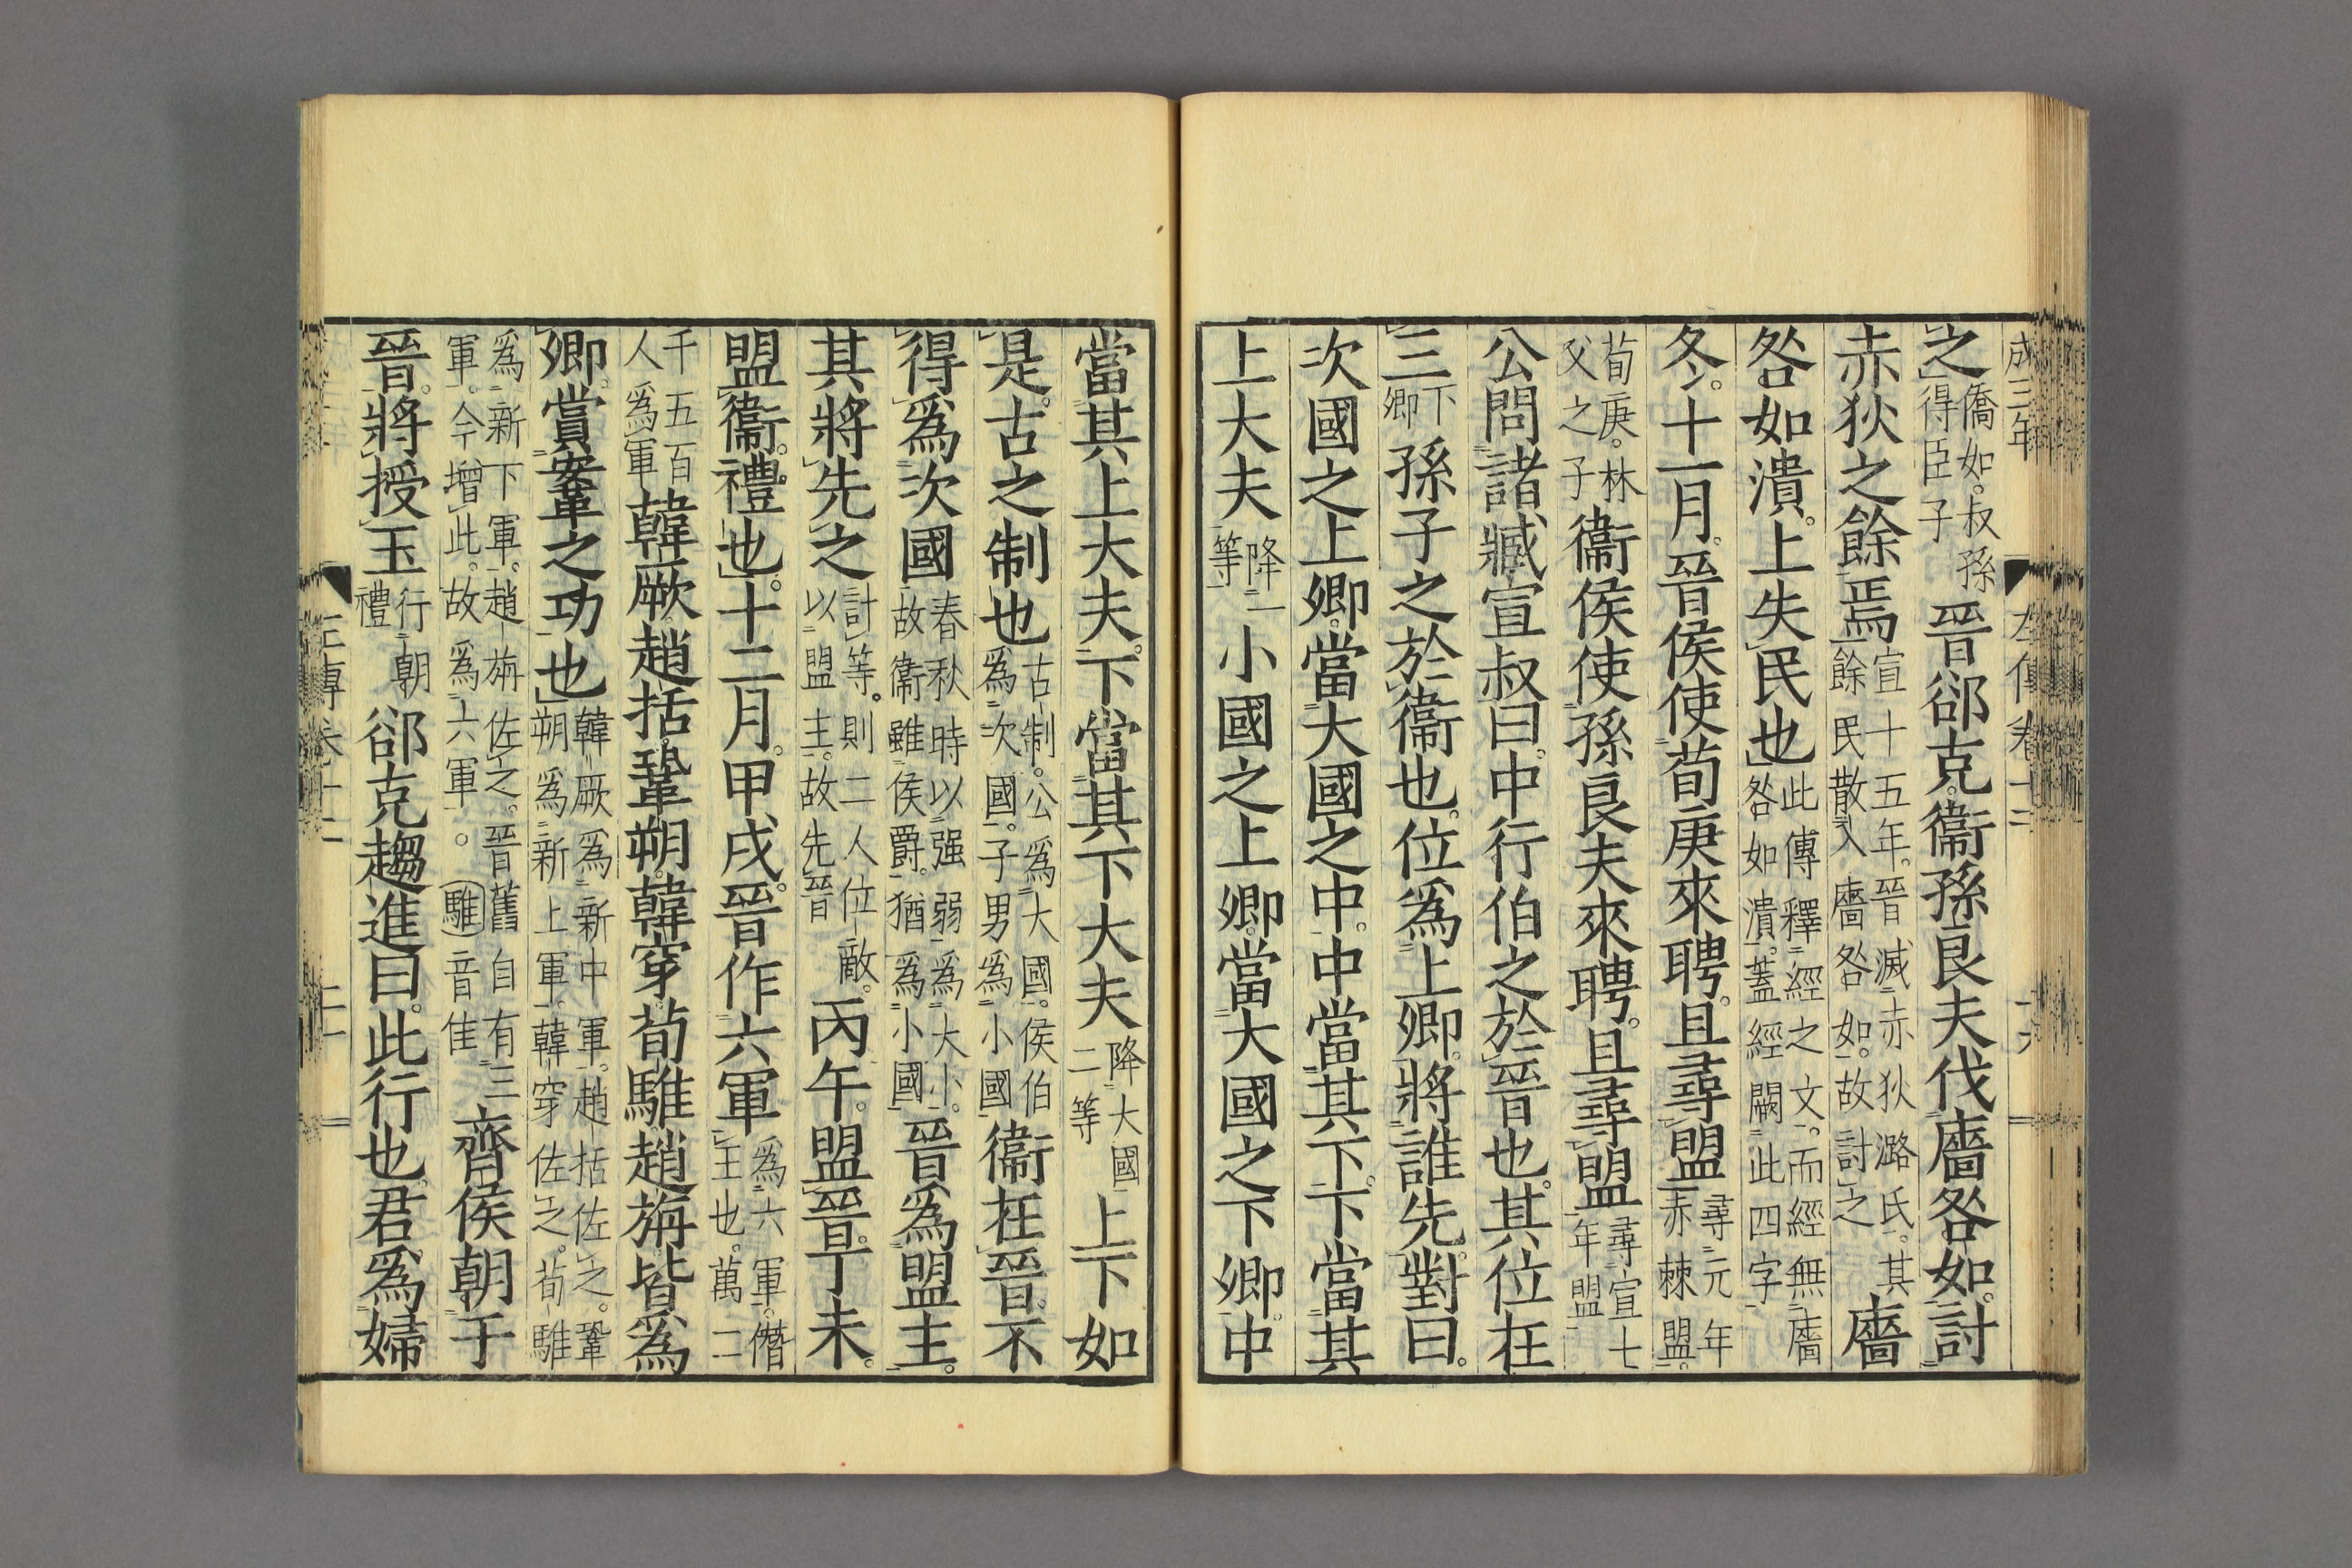 成三年 左傳卷十二
之僑如。叔孫得臣子晉郤克。衞孫良夫伐廧咎如。討
赤狄之餘焉宣十五年。晉滅赤狄潞氏。其餘民散入廧咎如。故討之廧
咎如潰。上失民也此傳釋經之文。而經無廧咎如潰。蓋經闕此四字
冬。十一月。晉侯使荀庚來聘。且尋盟尋元年赤棘盟。
荀庚。林父之子衞侯使孫良夫來聘。且尋盟尋宣七年盟
公問諸臧宣叔曰。中行伯之於晉也。其位在
三下卿孫子之於衞也。位爲上卿。將誰先。對曰。
次國之上卿。當大國之中。中當其下。下當其
上大夫降一等小國之上卿。當大國之下卿。中
當其上大夫。下當其下大夫降大國二等上下如
是。古之制也古制。公爲大國。侯伯爲次國。子男爲小國衞在晉。不
得爲次國春秋時以强弱爲大小。故衞雖侯爵。猶爲小國晉爲盟主。
其將先之計等。則二人位敵。以盟主。故先晉丙午。盟晉。丁未。
盟衞。禮也。十二月。甲戌。晉作六軍爲六軍。僭王也。萬二
千五百人爲軍韓厥。趙括。鞏朔。韓穿。荀騅。趙旃。皆爲
卿。賞鞌之功也韓厥爲新中軍。趙括佐之。鞏朔爲新上軍。韓穿佐之。荀騅
爲新下軍。趙旃佐之。晉舊自有三軍。今增此。故爲六軍。騅音隹齊侯朝于
晉。將授玉行朝禮郤克趨進曰。此行也。君爲婦